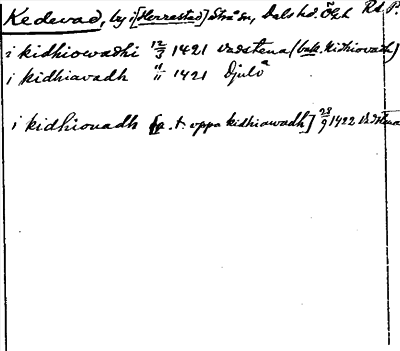 Kedevad, by i [Herrestad] Strå sn, Dals hd. Ögtl. Rd. P.
i kidhiowadhi 12/3 1421 vadstena (bak. kidhiovadh)
i kidhiavadh " 1421 Djulö
i kidhiouadh [a. t. vppa kidhiawadh] 28/9 1422 Vadstena